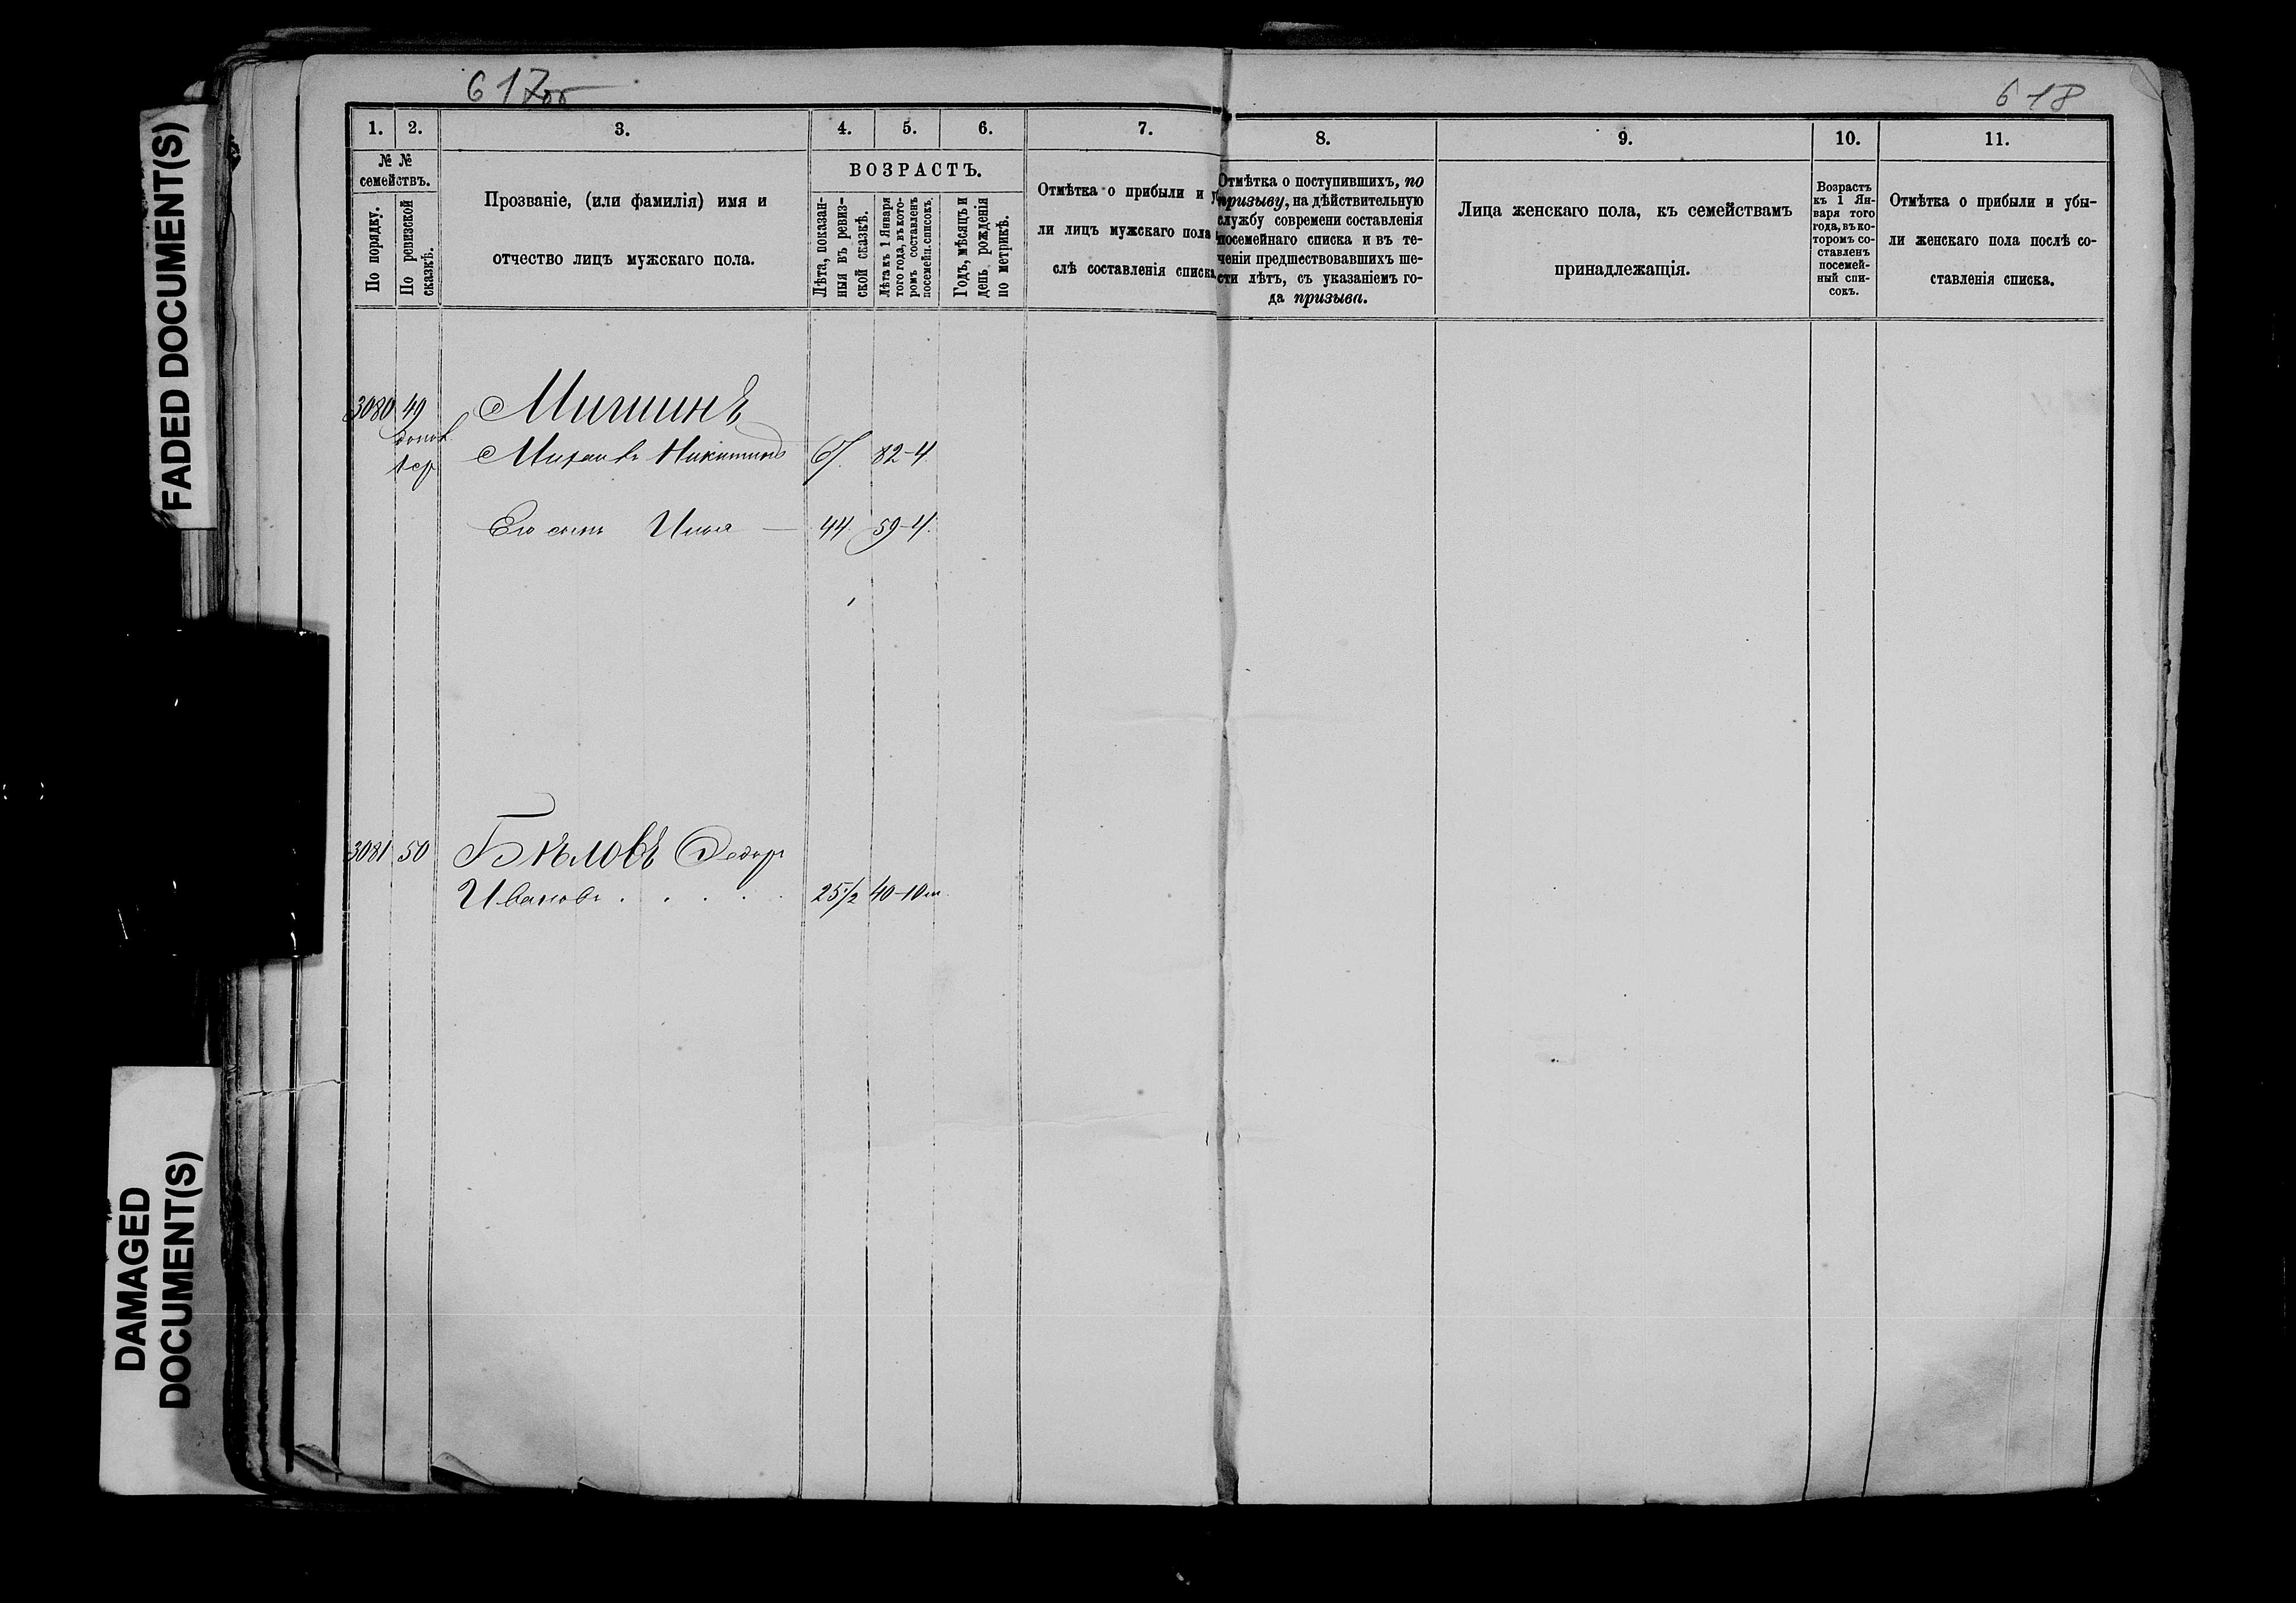 617об
618
1.
2.
3.
4.
5.
6.
7.
8.
9.
10.
11.
№ №
семействъ.
По порядку.
По ревизской
сказкѣ.
Прозваніе, (или фамилія) имя и
отчество лицъ мужскаго пола.
ВОЗРАСТЪ.
Лѣта, показан-
ныя въ ревиз-
ской сказкѣ.
Лѣта къ 1 Января
того года, въ кото-
ромъ составленъ
посемейн. списокъ.
Годъ, мѣсяцъ и
день рожденія
по метрикѣ.
Отмѣтка о прибыли и у
ли лицъ мужскаго пола
слѣ составленія списка
Отмѣтка о поступившихъ, по
призыву, на дѣйствительную
службу современи составленія
посемейнаго списка и въ те-
ченіи предшествовавшихъ ше-
сти лѣтъ, съ указаніемъ го-
да призыва.
Лица женскаго пола, къ семействамъ
принадлежащія.
Возрастъ
къ 1 Ян-
варя того
года, въ ко-
торомъ со-
ставленъ
посемей-
ный спи-
сокъ.
Отмѣтка о прибыли и убы-
ли женскаго пола послѣ со-
ставленія списка.
3080 49 Мишинъ
Михаилъ Никитинъ 67. 82-4.
Его сынъ Илья — 44. 59-4.
3081 50 Бѣловъ Федоръ
Ивановъ . . . . . 25½ 40-10м.
FADED DOCUMENT(S)
DAMAGED
DOCUMENT(S)